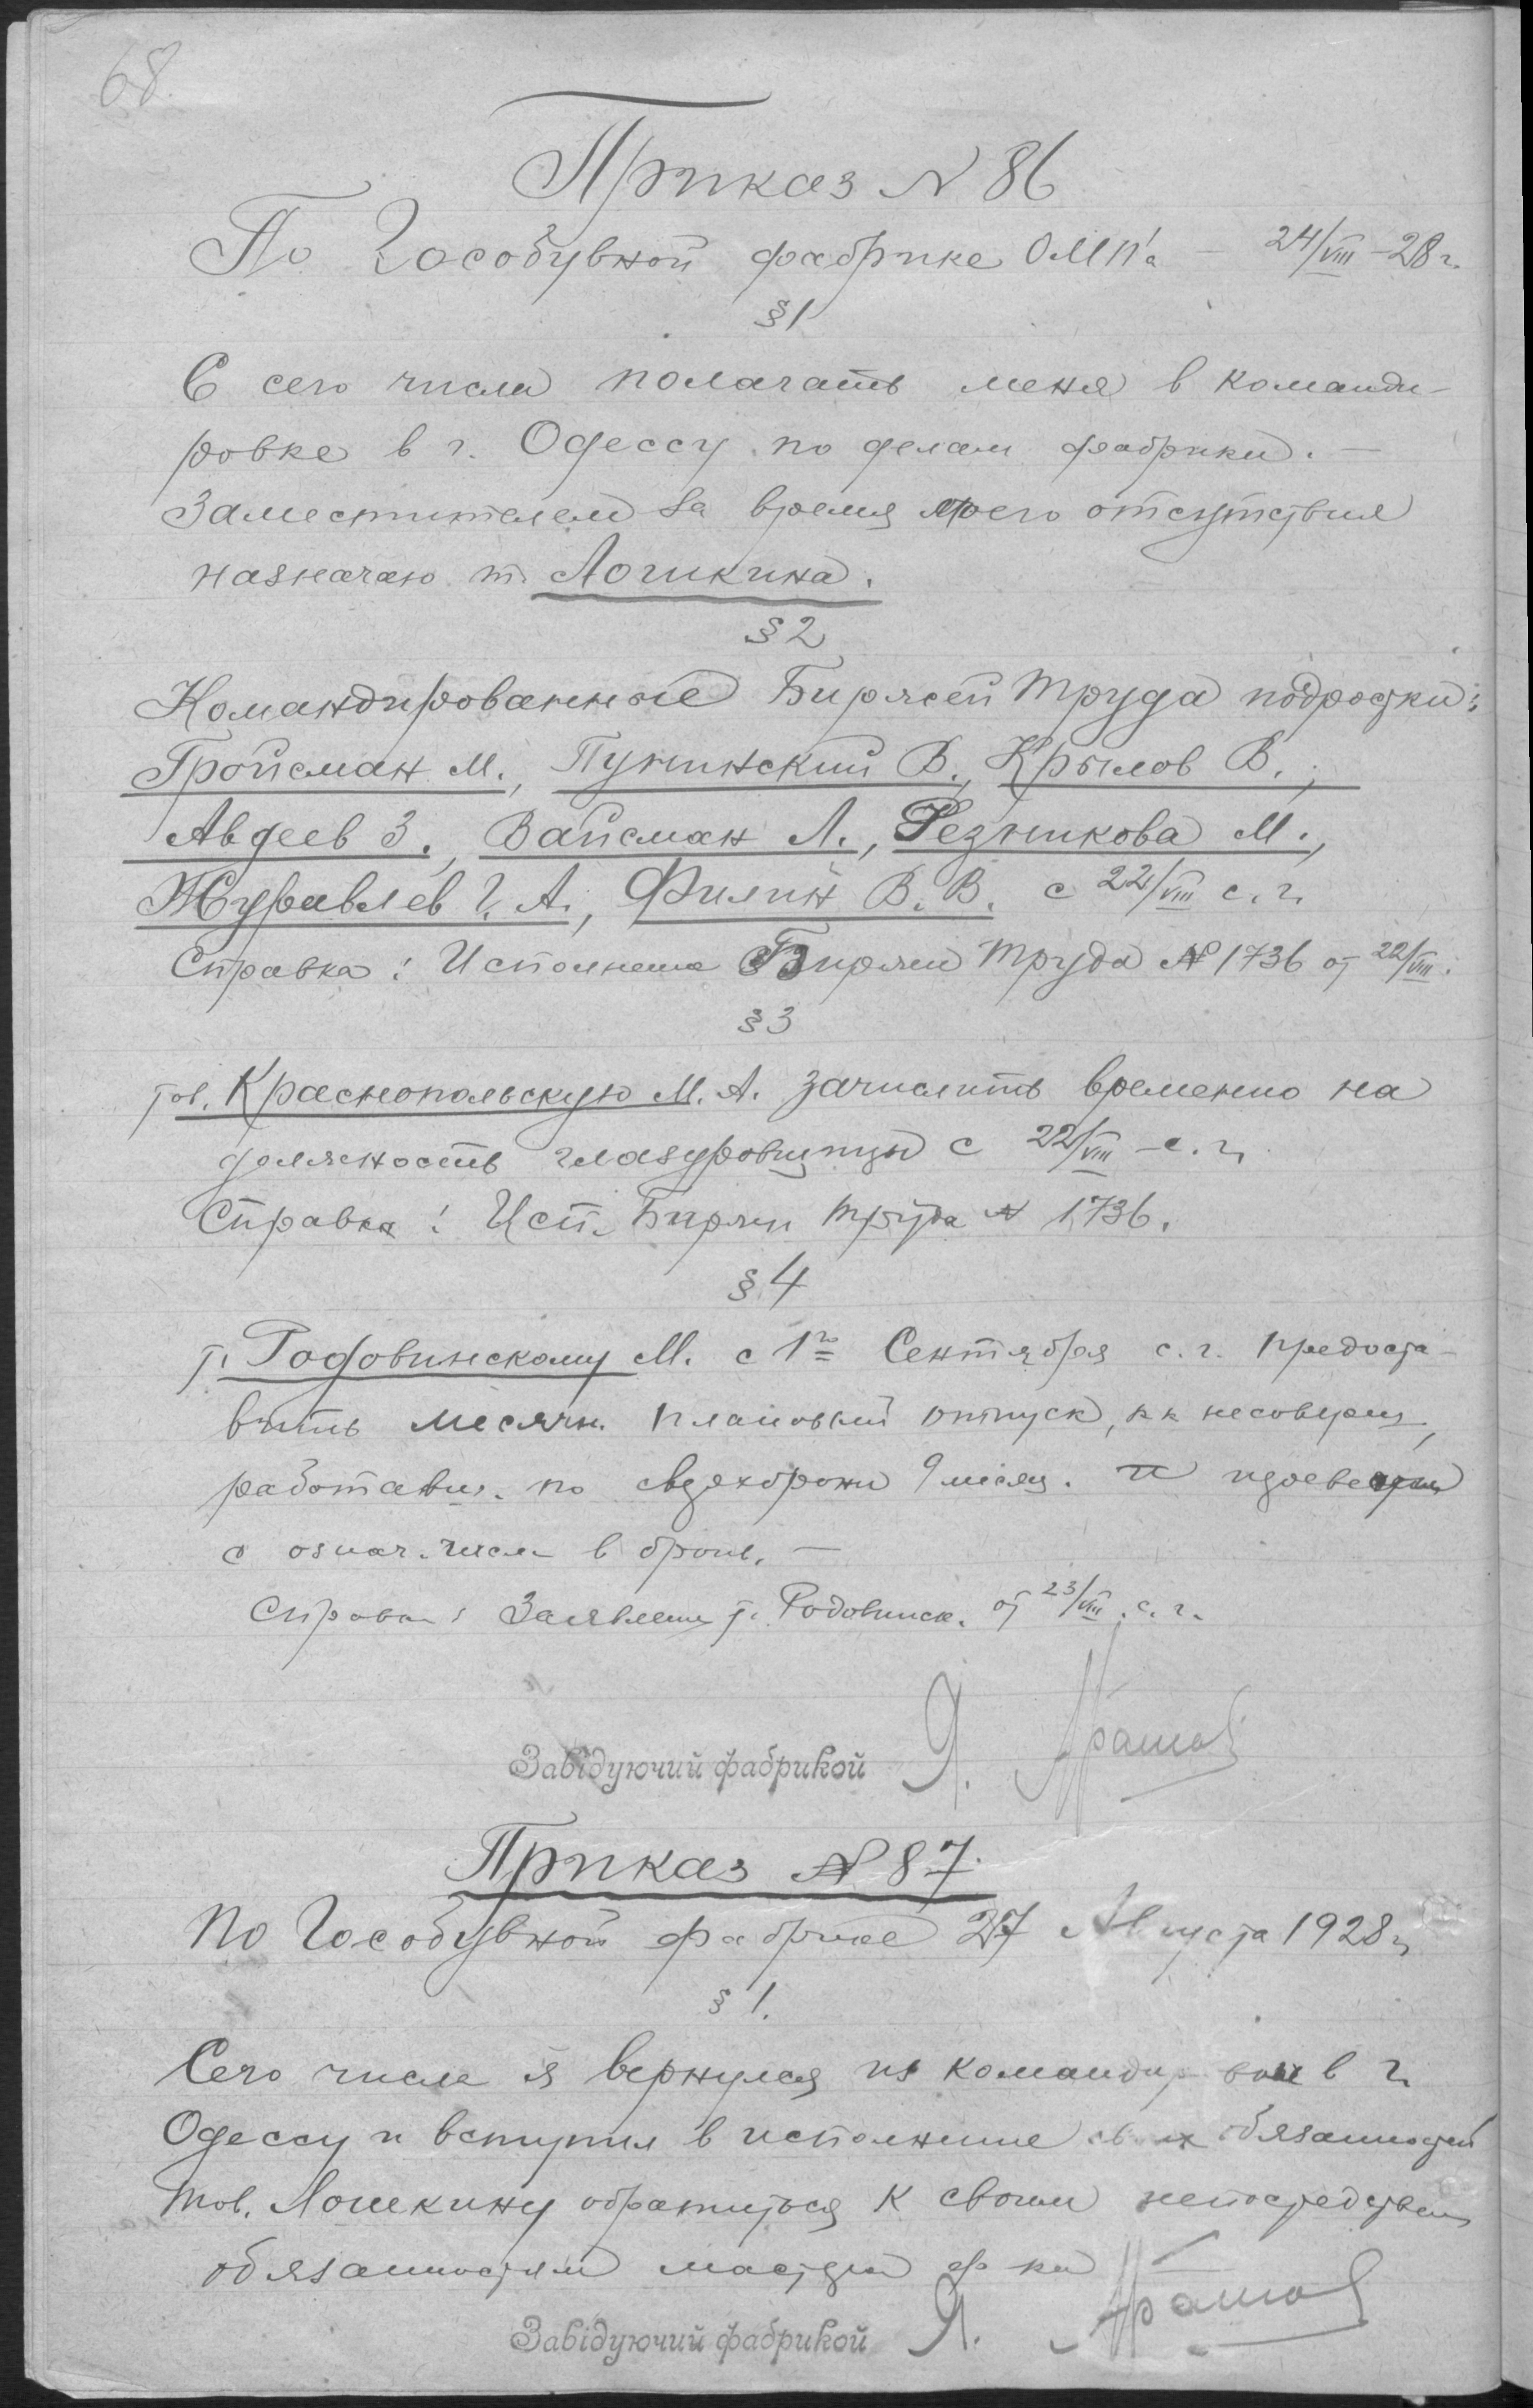 68.
Приказ N 86
По Гособувной фабрике ОМП'а – 24/VIII –28 г.
§1
С сего числа полагать меня в команди-
ровке в г. Одессу по делам фабрики. –
Заместителем за время моего отсутствия
назначаю т. Лошкина.
§2
Командированные Биржей труда подростки:
Гройсман М., Пунинский В., Крылов В.,
Авдеев З., Вайсман Л., Резникова М.,
Журавлев Г. А., Филин В. В. с 22/VIII с. г.
Справка: Исполнение Биржи труда N 1736 от 22/VIII.
§3
тов. Краснопольскую М. А. зачислить временно на
должность глазуровщицы с 22/VIII – с. г.
Справка: Исп. Биржи труда N 1736.
§4
т. Родовинскому М. с 1го Сентября с. г. предоста-
вить месячн. плановый отпуск, как несоверш,
работавш. по 9 месяц. и
с означ. числа в броне. –
Справка: Заявление т. Родовинск. от 23/VIII. с. г.
Завідуючий фабрикой Я.
Приказ N 87.
По Гособувной фабрике 27 Августа 1928 г.
§ 1.
Сего числа я вернулся из командировки в г.
Одессу и вступил в исполнение своих обязанностей
тов. Лошкину обратиться к своим непосредствен
обязанностям мастера ф-ки
Завідуючий фабрикой Я.